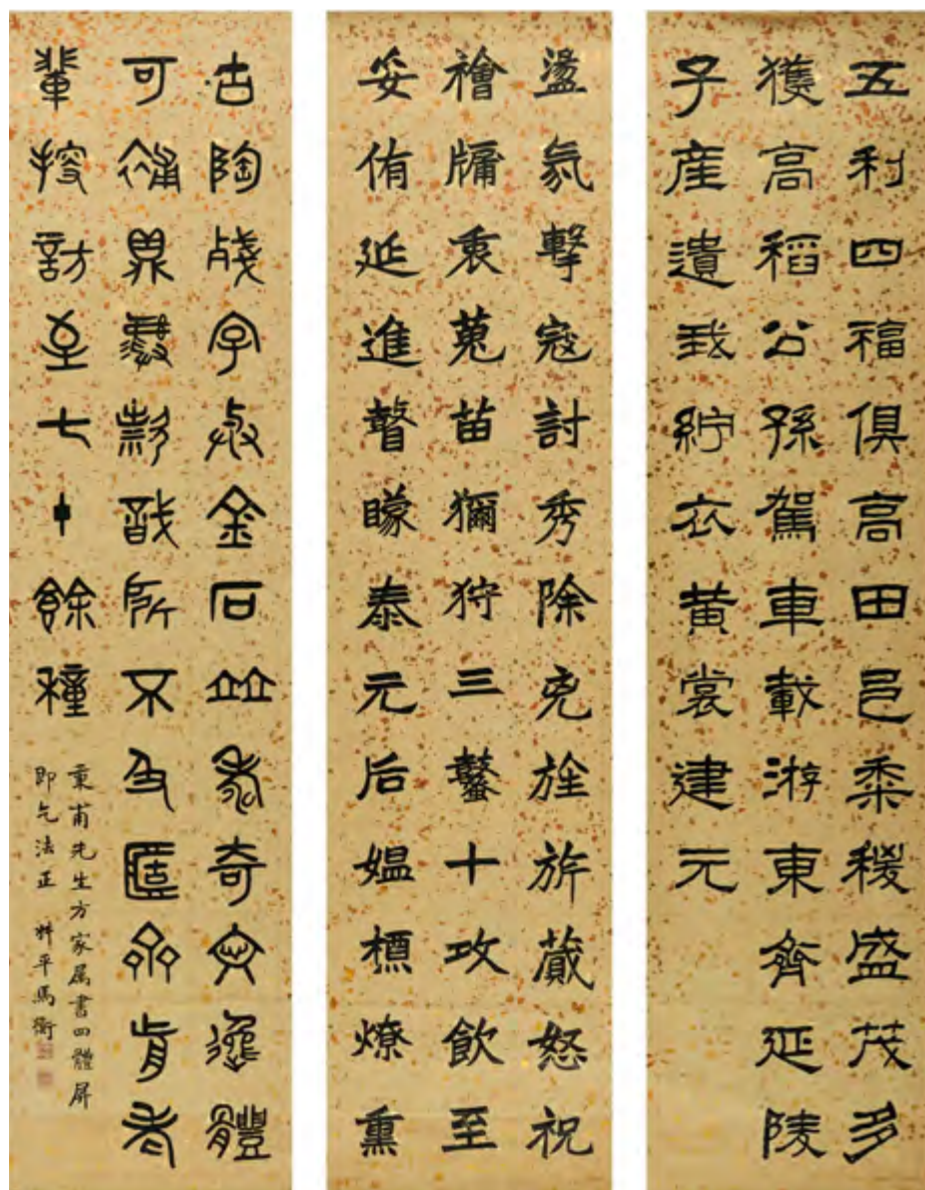 五利四福俱高田邑黍稷盛茂多
獲高稻公孫駕車載游東齊延陵
子產遺我紵衣黃裳建元
盪氛擊寇討秀除兇旌旂蕆怒祝
禬衷蒐苗獮狩三鼜十攻飲至
妥侑延進瞽矇泰元后媼槱燎熏
古陶殘字金石竝多奇文逸體
可補鼎彝款識所不及
輩搜訪至七十餘種
秉甫先生方家属書四體屏
即乞法正 叔平馬衡